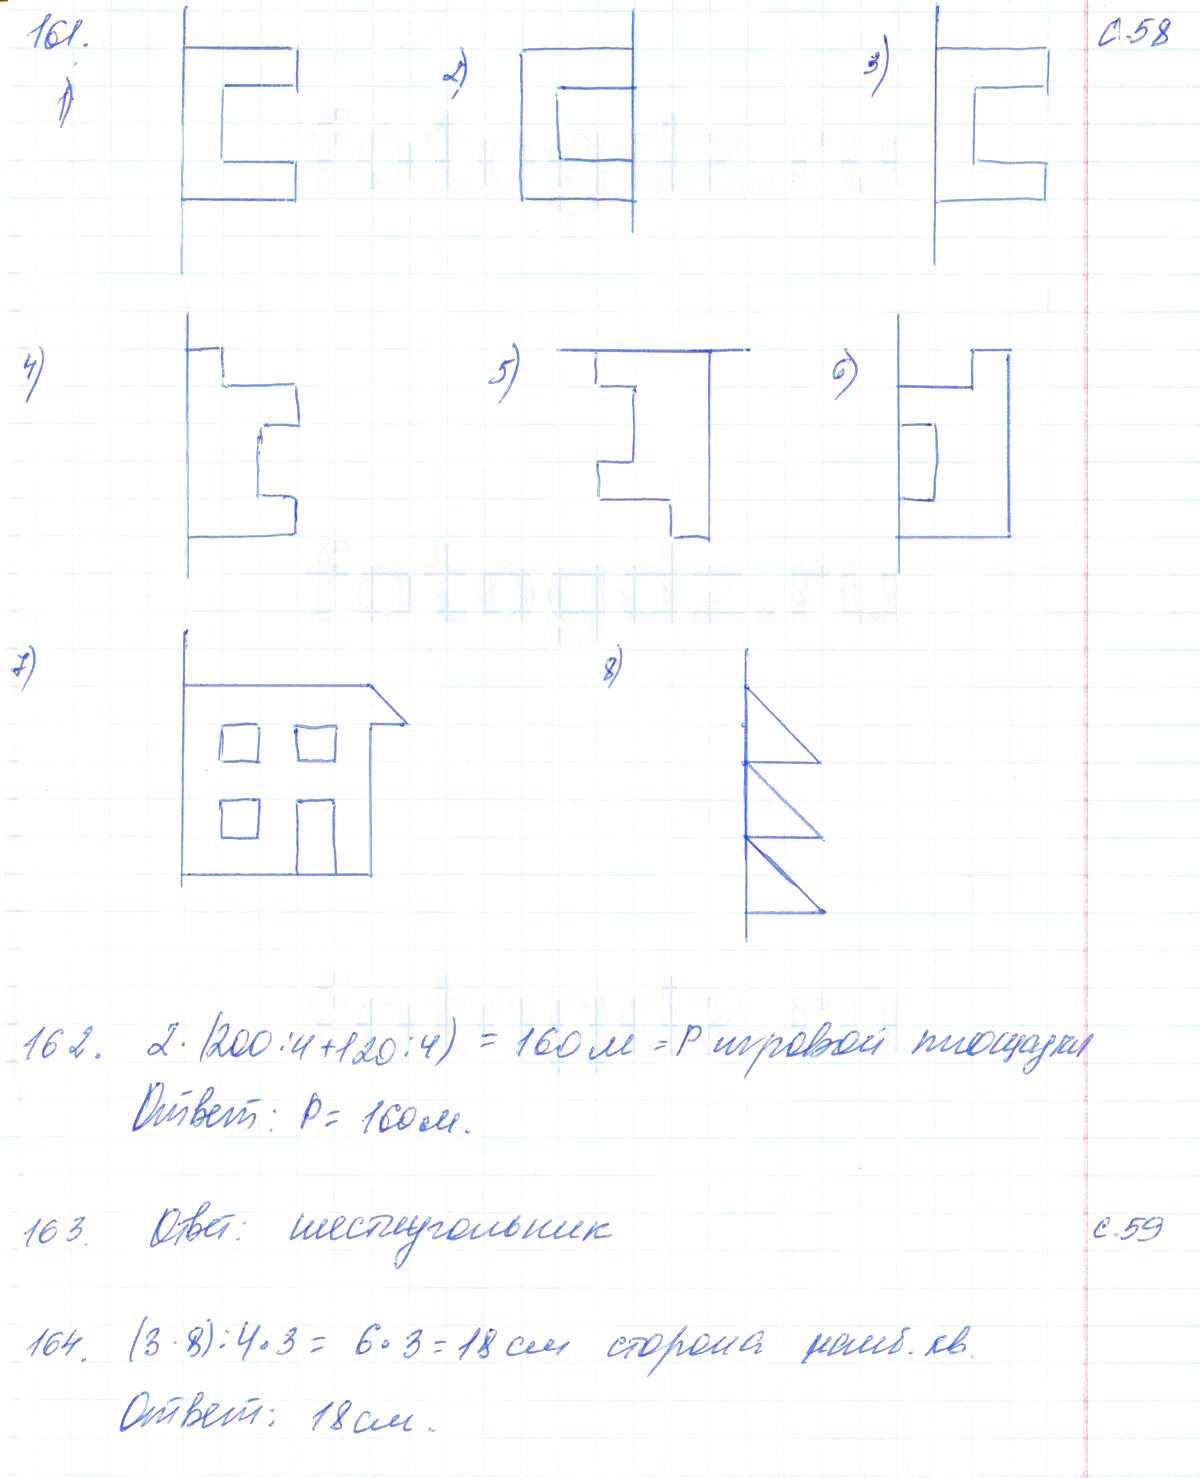 161.
с.58
1)
2)
3)
fotogdz.ru
4)
5)
6)
fotogdz.ru
7)
8)
fotogdz.ru
162. 2·(200:4+120:4) = 160м = P игровой площадки
Ответ: P = 160м.
163. Ответ: шестиугольник
с.59
164. (3·8):4·3 = 6·3 = 18 см сторона наиб. кв.
Ответ: 18см.